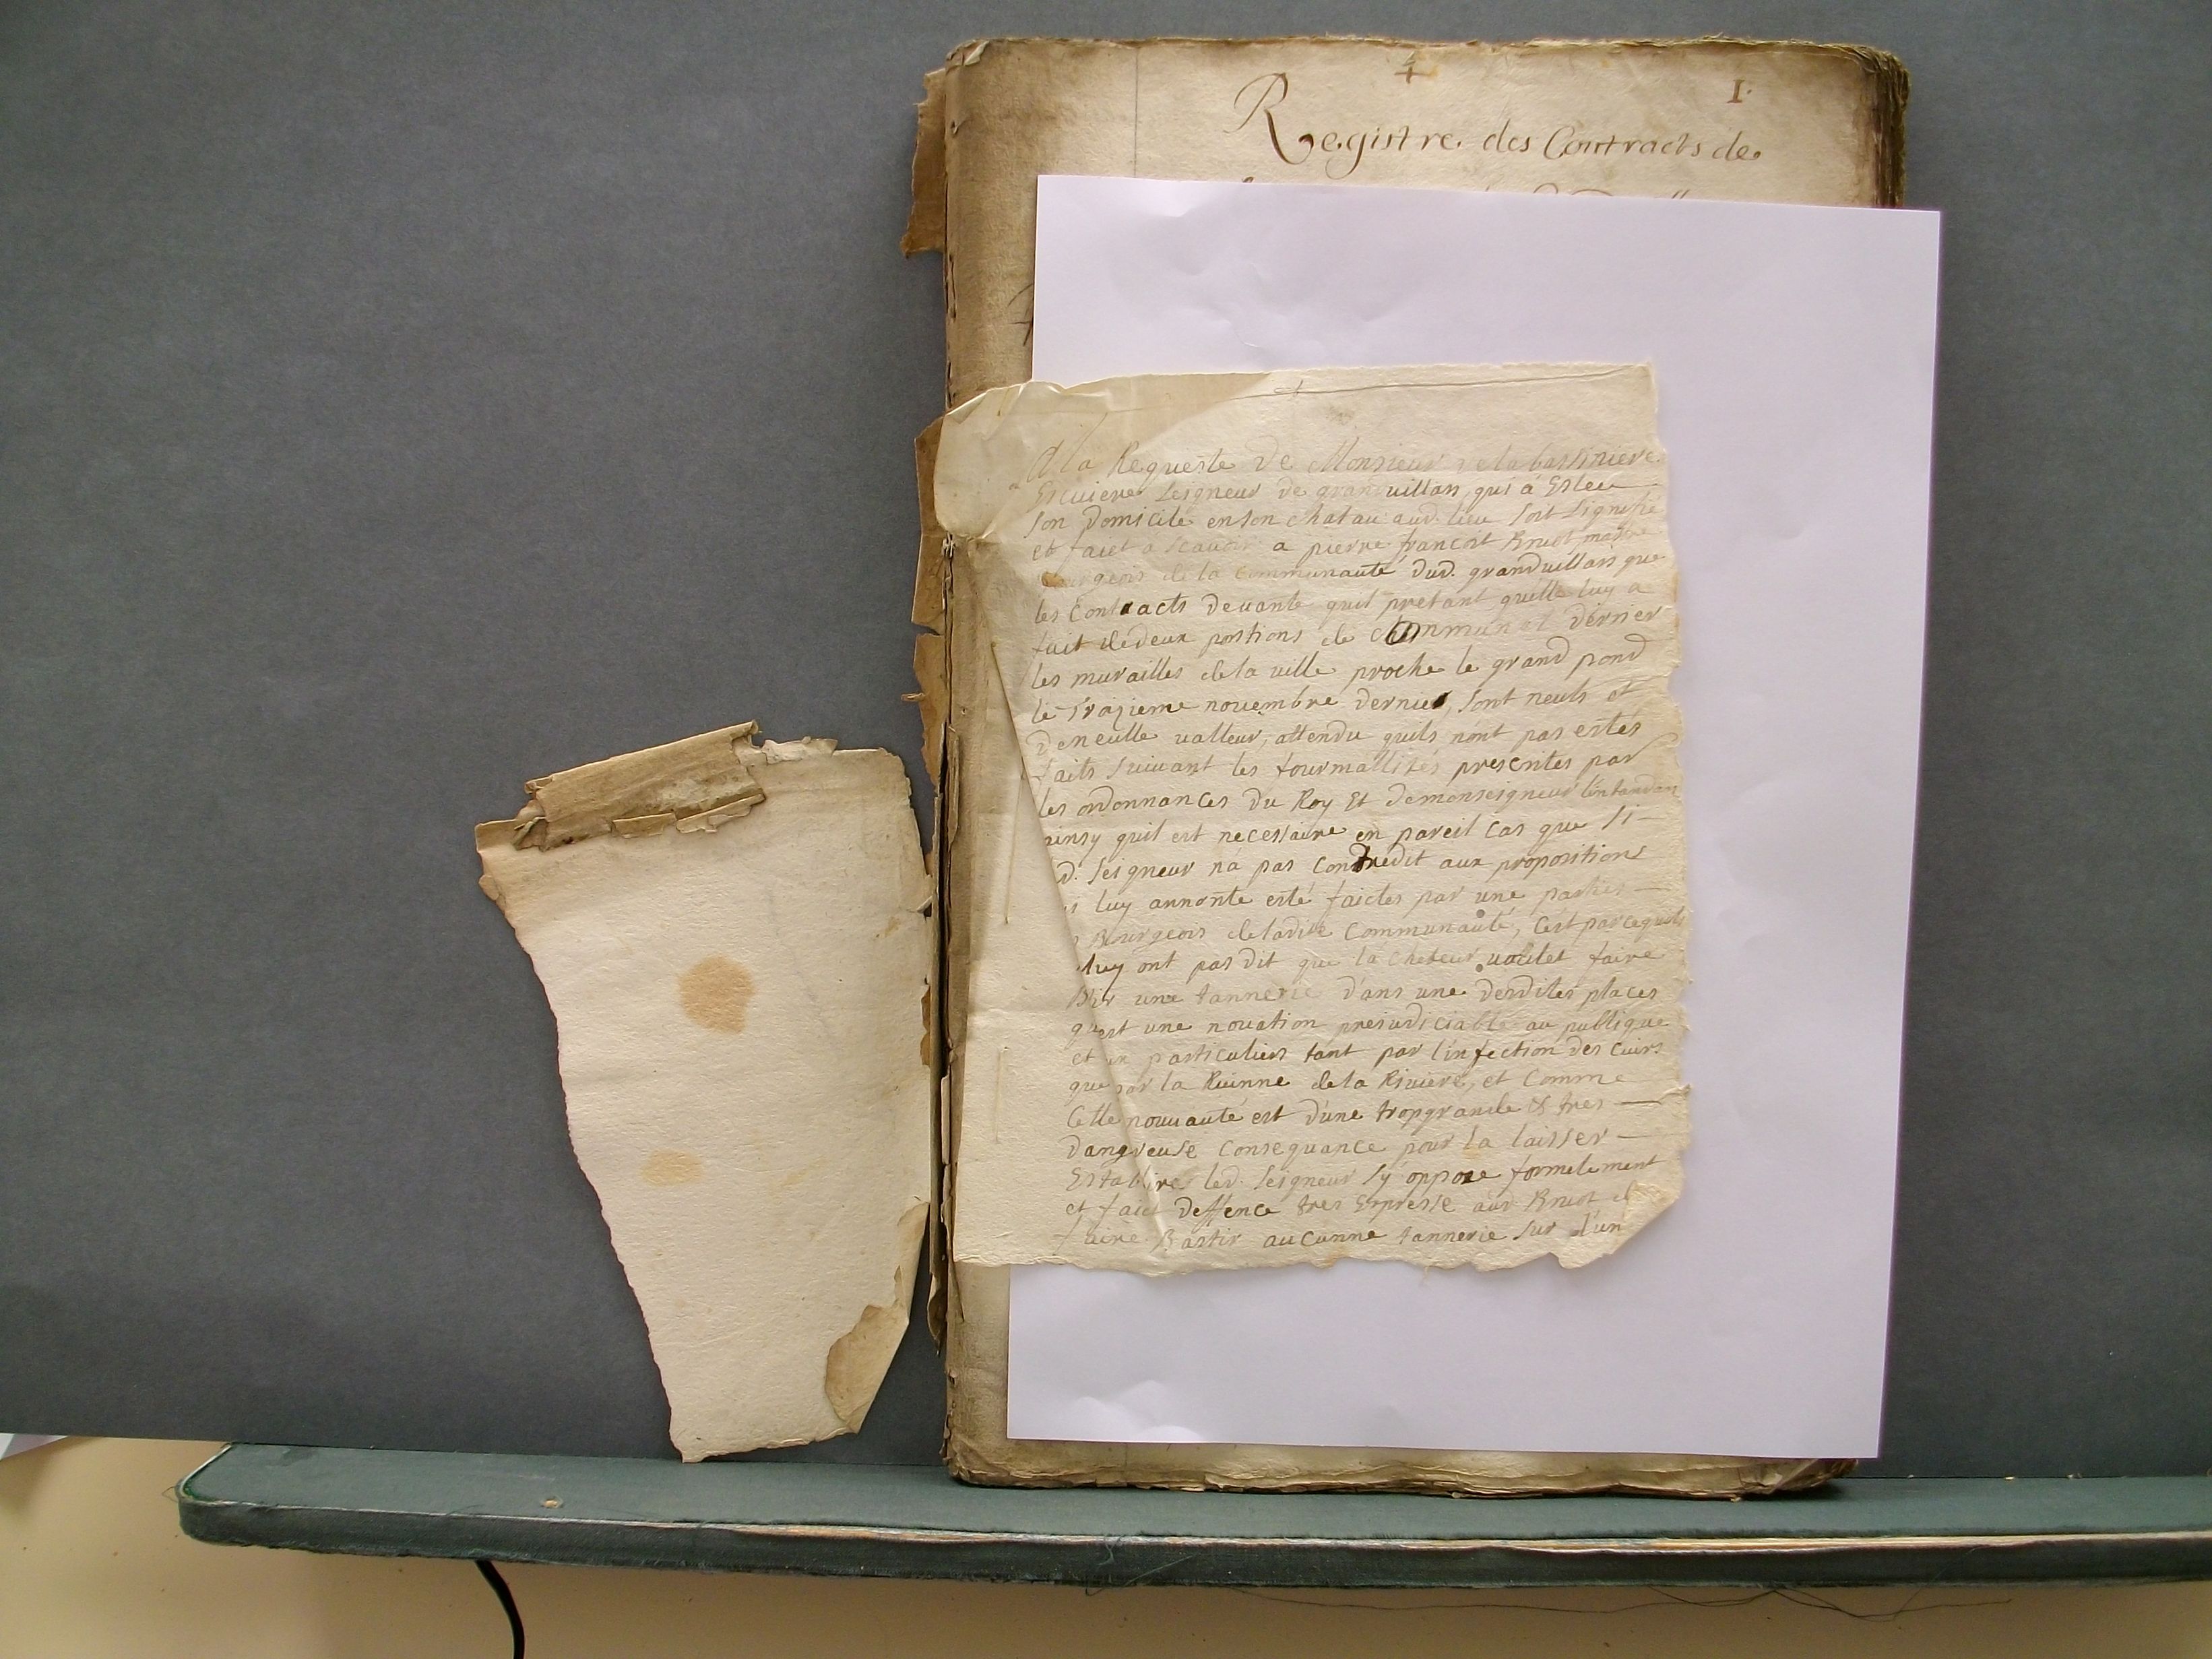 4
1.
Registre des Contracts de
A la Requeste de Monsieur de la bastiniere
Escuiere Seigneur de granduillars qui a Esleu
son domicile en son chatau aud. lieu soit Signifié
et faict a scauoir a pierre francoit Bruot
bourgeois de la Communauté dud. granduillars que
les Contracts deuante quil pretant quelle luy a
fait de deux portions de Commun et dernier
les murailles de la uille proche le grand pond
le traizieme nouembre dernier, sont neuls et
deneulle ualleur, attendu quils nont pas estés
faits suiuant les fourmallités prescrites par
les ordonnances du Roy Et demonseigneur lintandan
ainsy quil est necessaire en pareil Cas que si
d. seigneur na pas Contredit aux propositions
luy annonte esté faictes par une parties
Bourgeois deladite Communauté, Cest parcequils
luy ont pas dit que la cheteur uoulet faire
une tannerie dans une desdites places
quest une nouation preiudiciable au publique
et un particuliers tant par linfection des cuirs
que par la Ruinne de la Riuiere, et Comme
Cette nouuauté est dune trop grande et tres
dangreuse Consequance pour la laisser
Establire led. Seigneur sy oppose formelement
et faict deffence tres Expresse aud Bruot d
faire Bastir aucunne tannerie sur l'un